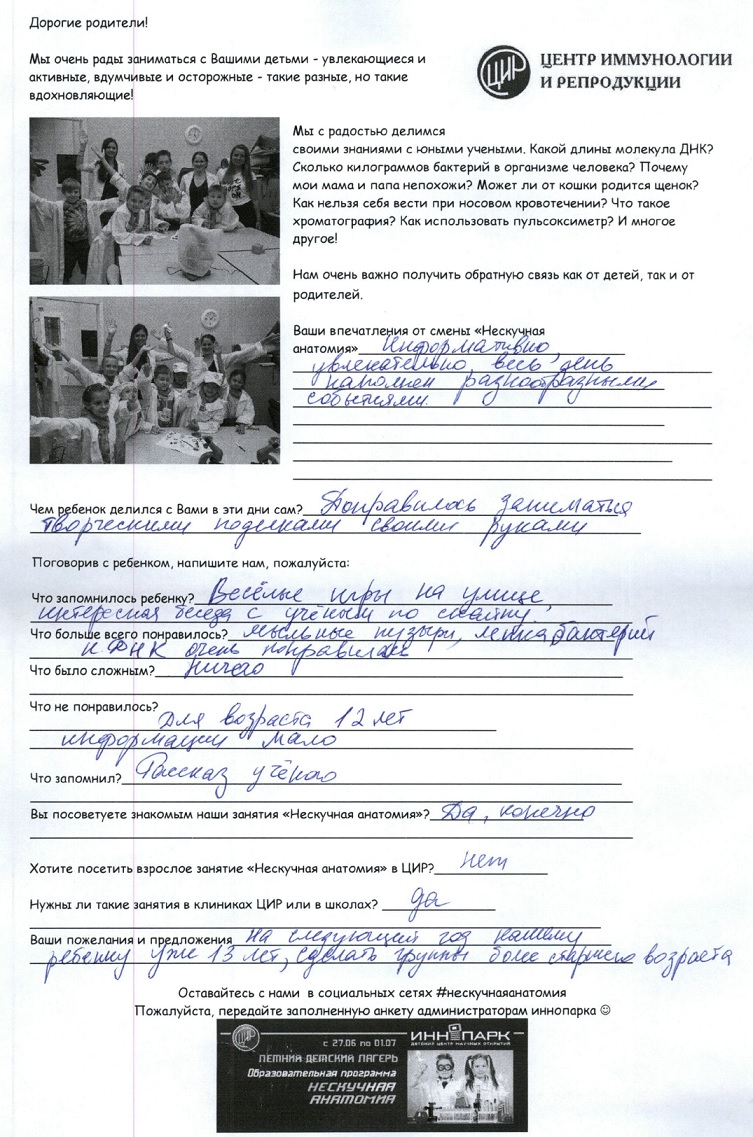 Дорогие родители!
Мы очень рады заниматься с Вашими детьми - увлекающиеся и
активные, вдумчивые и осторожные - такие разные, но такие
вдохновляющие!
ЦИР
ЦЕНТР ИММУНОЛОГИИ
И РЕПРОДУКЦИИ
Мы с радостью делимся
своими знаниями с юными учеными. Какой длины молекула ДНК?
Сколько килограммов бактерий в организме человека? Почему
мои мама и папа непохожи? Может ли от кошки родится щенок?
Как нельзя себя вести при носовом кровотечении? Что такое
хроматография? Как использовать пульсоксиметр? И многое
другое!
Нам очень важно получить обратную связь как от детей, так и от
родителей.
Ваши впечатления от смены «Нескучная
анатомия» Информативно,
увлекательно, весь день
наполнен разнообразными
событиями.
Чем ребенок делился с Вами в эти дни сам? Понравилось заниматься
творческими поделками своими руками
Поговорив с ребенком, напишите нам, пожалуйста:
Что запомнилось ребенку? Весёлые игры на улице,
интересная беседа с учёным по скайпу.
Что больше всего понравилось? мыльные пузыри, лепка бактерий
и ДНК очень понравилась
Что было сложным? ничего
Что не понравилось?
Для возраста 12 лет
информации мало
Что запомнил? Рассказ учёного
Вы посоветуете знакомым наши занятия «Нескучная анатомия»? Да, конечно
Хотите посетить взрослое занятие «Нескучная анатомия» в ЦИР? нет
Нужны ли такие занятия в клиниках ЦИР или в школах? да
Ваши пожелания и предложения на следующий год нашему
ребенку уже 13 лет, сделать группы более старшего возраста
Оставайтесь с нами в социальных сетях #нескучнаяанатомия
Пожалуйста, передайте заполненную анкету администраторам иннопарка ☺
ЦИР
с 27.06 по 01.07
ИННОПАРК
ДЕТСКИЙ ЦЕНТР НАУЧНЫХ ОТКРЫТИЙ
ЛЕТНИЙ ДЕТСКИЙ ЛАГЕРЬ
Образовательная программа
НЕСКУЧНАЯ
АНАТОМИЯ